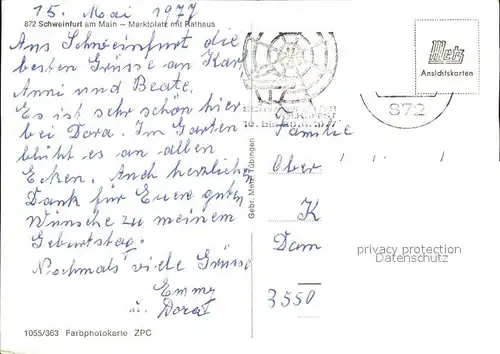 15. Mai 1977
872 Schweinfurt am Main – Marktplatz mit Rathaus
Aus Schweinfurt die
besten Grüsse an Kar
Anni und Beate.
Es ist sehr schön hier
bei Dora. Im Garten
blüht es an allen
Ecken. Auch herzlichen
Dank für Euere guten
Wünsche zu meinem
Geburtstag.
Nochmals viele Grüsse
Emmy
u. Dora
1055/363 Farbphotokarte ZPC
Gebr. Metz, Tübingen
Metz
Ansichtskarten
872
Familie
Ober
K
Dam
3550
privacy protection
DATENSCHUTZ